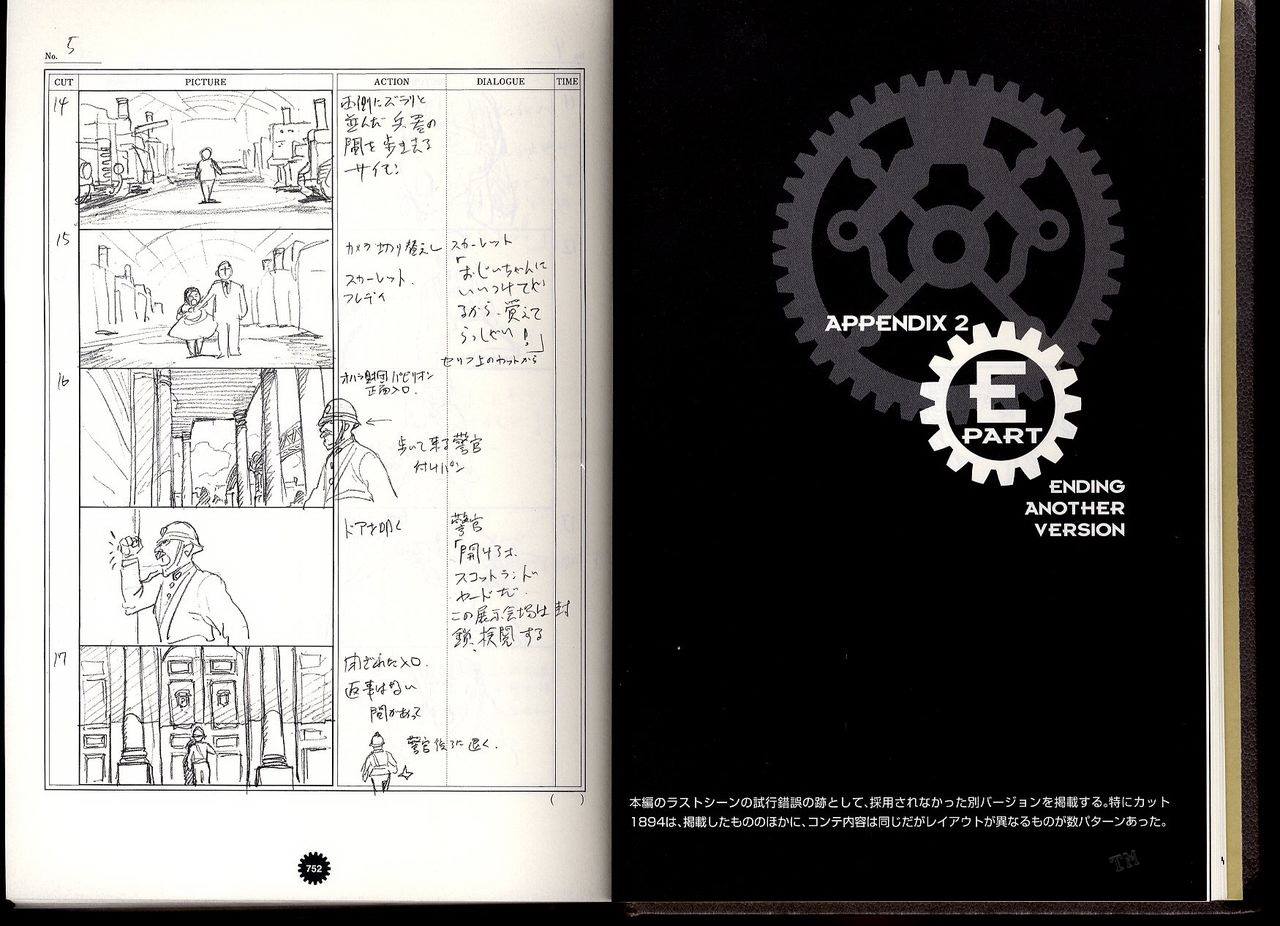 No. 5
CUT PICTURE ACTION DIALOGUE TIME
14
両側にズラリと
並んだ兵器の
間を歩き去る
サイモン
15
カメラ切り替えし
スカーレット
フレディ
スカーレット
「おじいちゃんに
いいつけてや
るから、覚えて
らっしゃい!」
セリフ上のカットから
16
オハラ財団パビリオン
正面入口.
歩いて来る警官
付けパン
ドアを叩く
警官
「開けろ!
スコットランド
ヤードだ
この展示会場は封
鎖、検閲する
17
閉ざされた入口.
返事はない
間があって
警官後ろに退く.
( )
752
APPENDIX 2
E
PART
ENDING
ANOTHER
VERSION
本編のラストシーンの試行錯誤の跡として、採用されなかった別バージョンを掲載する。特にカット
1894は、掲載したもののほかに、コンテ内容は同じだがレイアウトが異なるものが数パターンあった。
TM